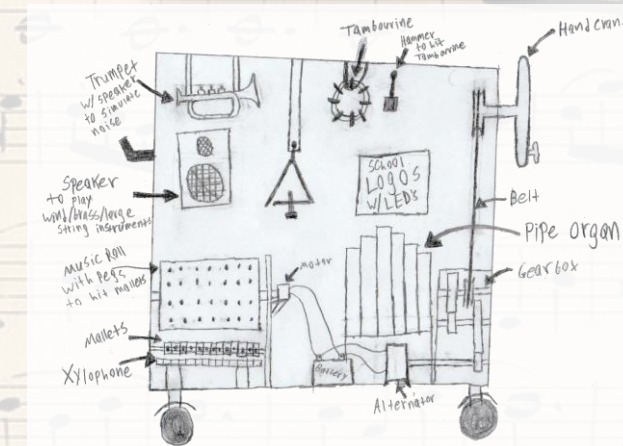 Tambourine
Hammer
to hit
Tambourine
Hand Cran
Trumpet
w/speaker
to simulate
noise
Speaker
to play
wind/brass/large
string instruments
SCHOOL
LOGOS
W/LED's
Belt
Pipe Organ
Gearbox
Music Roll
with Pegs
to hit mallets
motor
Mallets
Xylophone
Battery
Alternator